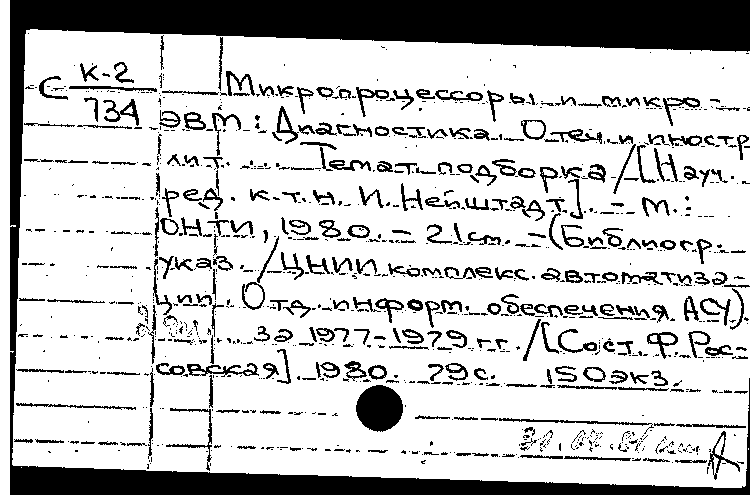 С К-2
734
Микропроцессоры и микро-
ЭВМ: Диагностика. Отеч. и иностр
лит. ... Темат. подборка / [Науч.
ред. к.т.н. И. Нейштадт]. – М.:
ОНТИ, 1980. – 21 см. – (Библиогр.
указ. / ЦНИИ комплекс. автоматиза-
ции. Отд. информ. обеспечения АСУ).
... за 1977–1979 гг. / [Сост. Ф. Рос-
совская]. 1980. 79 с. 150 экз.